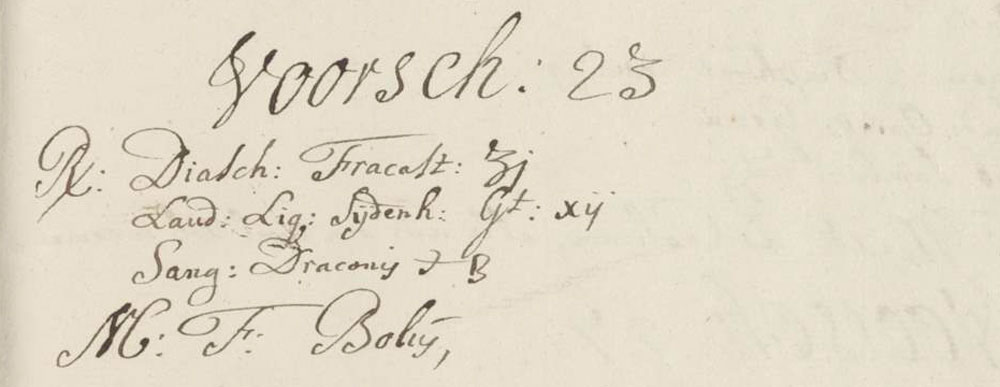 Voorsch: 23
℞: Diasch: Fracast: ʒj
Laud: Liq: Sÿdenh: Gt: xij
Sang: Draconis ℈ ß
M: F: Bolus,